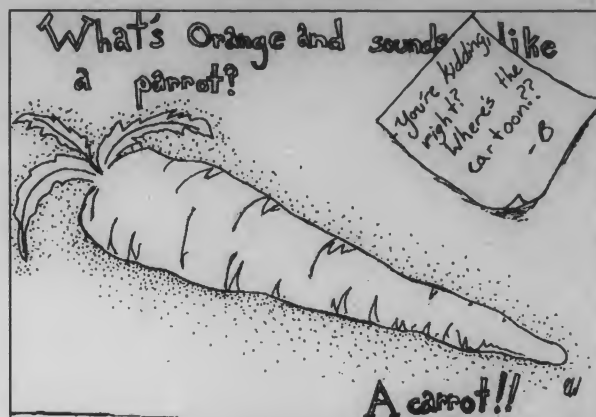 What's Orange and sounds like
a parrot?
You're kidding,
right?
Where's the
cartoon??
-B
A carrot!!